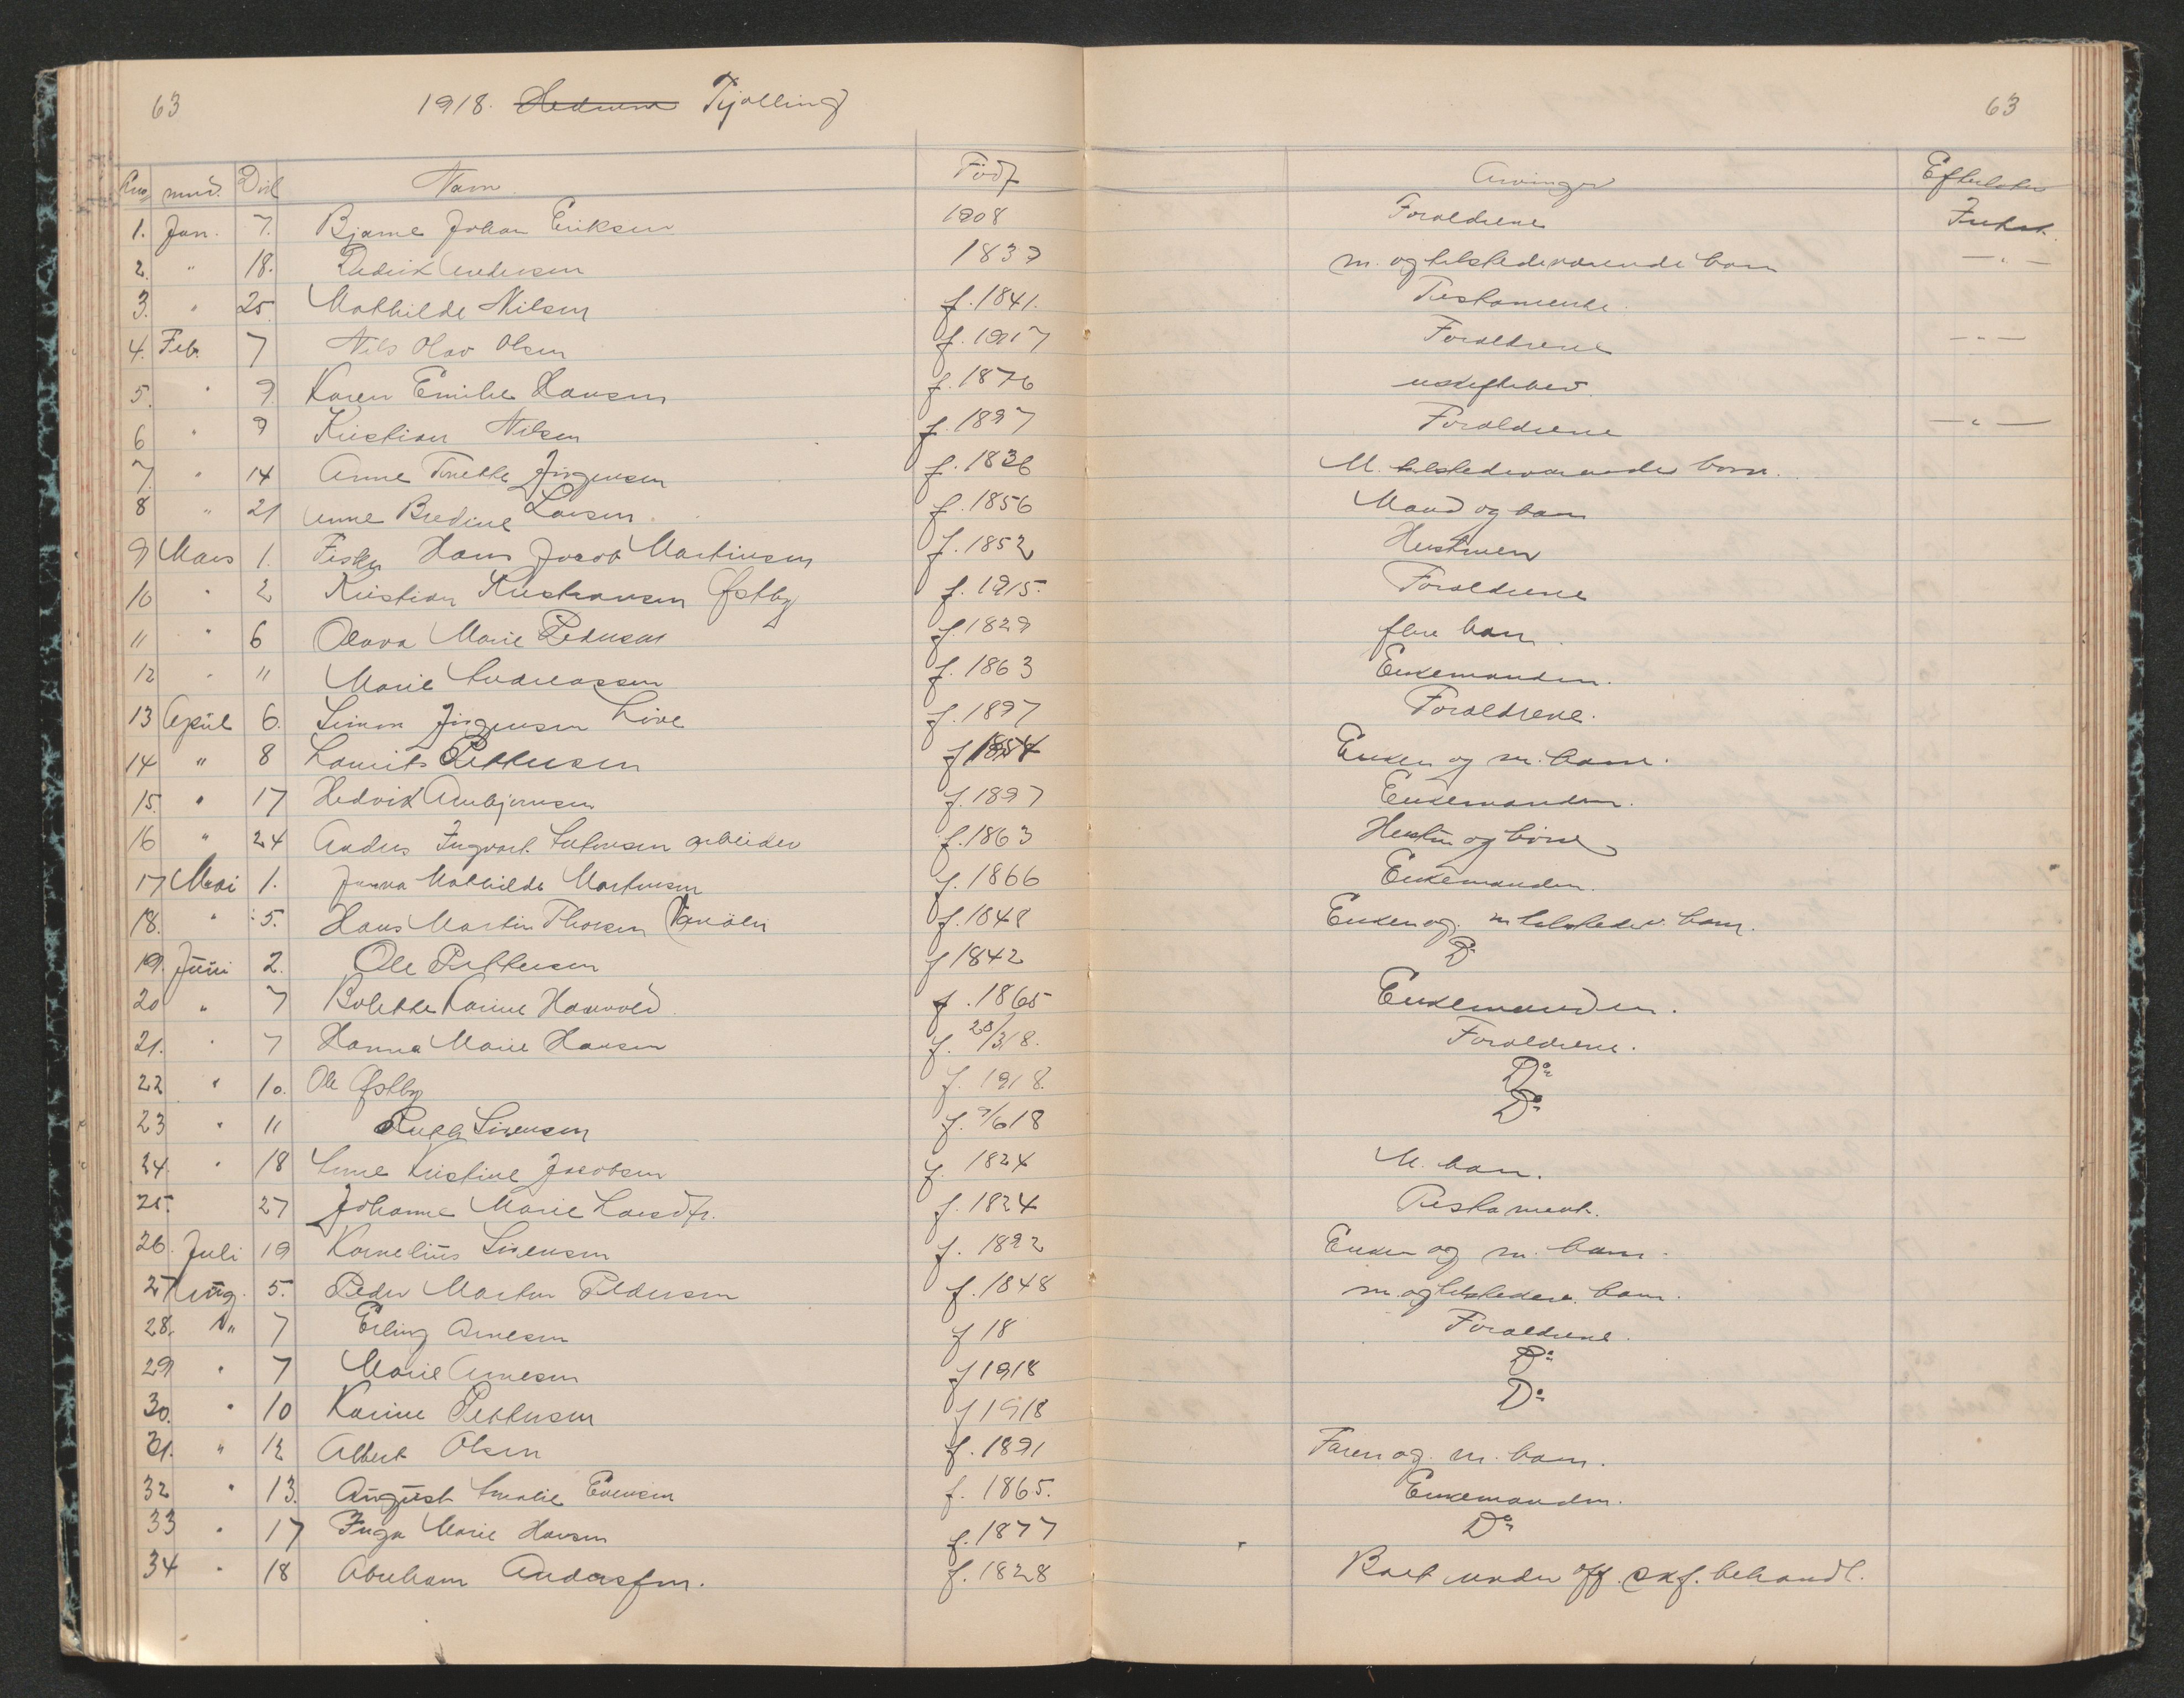 63 1918. Hedrum Tjølling 63
mnd. Navn Født Arvinger
1. Jan. 7. Bjarne Johan Eriksen 1908 Forældrene Intet.
2. " 18. Didrik Andersen 1839 m. og tilstedeværende barn — " —
3. " 25. Mathilde Nilsen f. 1841. Testamente.
4. Feb. 7 Nils Olav Olsen f. 1917 Forældrene — " —
5. " 9. Karen Emilie Hansen f. 1876 uskiftebev.
6 " 9 Kristian Nilsen f. 1897 Forældrene — " —
7. " 14 Anne Jørgensen f. 1836 M. tilstedeværende barn.
8 " 21 Anne Bredine Larsen. f. 1856 Mand og barn
9 Mars 1. Fisker Hans Jacob Martinsen f. 1852 Hustruen
10 " 2 Kristian Kristiansen Østby f. 1915. Forældrene
11 " 6 Olava Marie Pedersen f. 1829 flere barn.
12 " 11 Marie Andreassen f. 1863 Enkemanden.
13 April 6. Simon Jørgensen Live f. 1897 Forældrene.
14 " 8 Laurits Pettersen f 1854 Enken og m. barn.
15. " 17 Hedvik Ambjørnsen f. 1897 Enkemanden.
16 " 24 Anders Ingvart arbeider f. 1863 Hustru og børn
17 Mai 1. Mathilde Martinsen f. 1866 Enkemanden.
18. " 5. Hans Martin Thorsen f. 1848 Enken og m tilstedev. barn.
19. Juni 2. Ole Pettersen f 1842 Do
20 " 7 Bolette Karine Haavold f. 1865 Enkemanden.
21. " 7 Hanna Marie Hansen f. 28/3 18. Forældrene.
22 " 10. Ole Østby f. 1918. Do
23 " 11 Ruth Sørensen f. 9/6 18 Do
24. " 18 Anne Kristine Jacobsen f. 1824 M. barn.
25. 27 Johanne Marie Larsdtr. f. 1824 Testament.
26. Juli 19 Kornelius Sørensen f. 1892 Enken og m. barn.
27 Aug. 5. Peder Martin Pedersen f. 1848 m. og tilstedev. barn.
28. " 7 Erling Arnesen f 18 Forældrene.
29 " 7 Marie Arnesen f 1918 Do
30. " 10 Karine Pettersen f 1918 Do
31. " 12 Albert Olsen f. 1891 Faren og m. barn.
32 " 13. August Amalie Evensen f. 1865. Enkemanden.
33 " 17 Inga Marie Hansen f. 1877 Do
34 " 18 Abraham Andersen. f. 1828 Boet under off. skf. behandl.